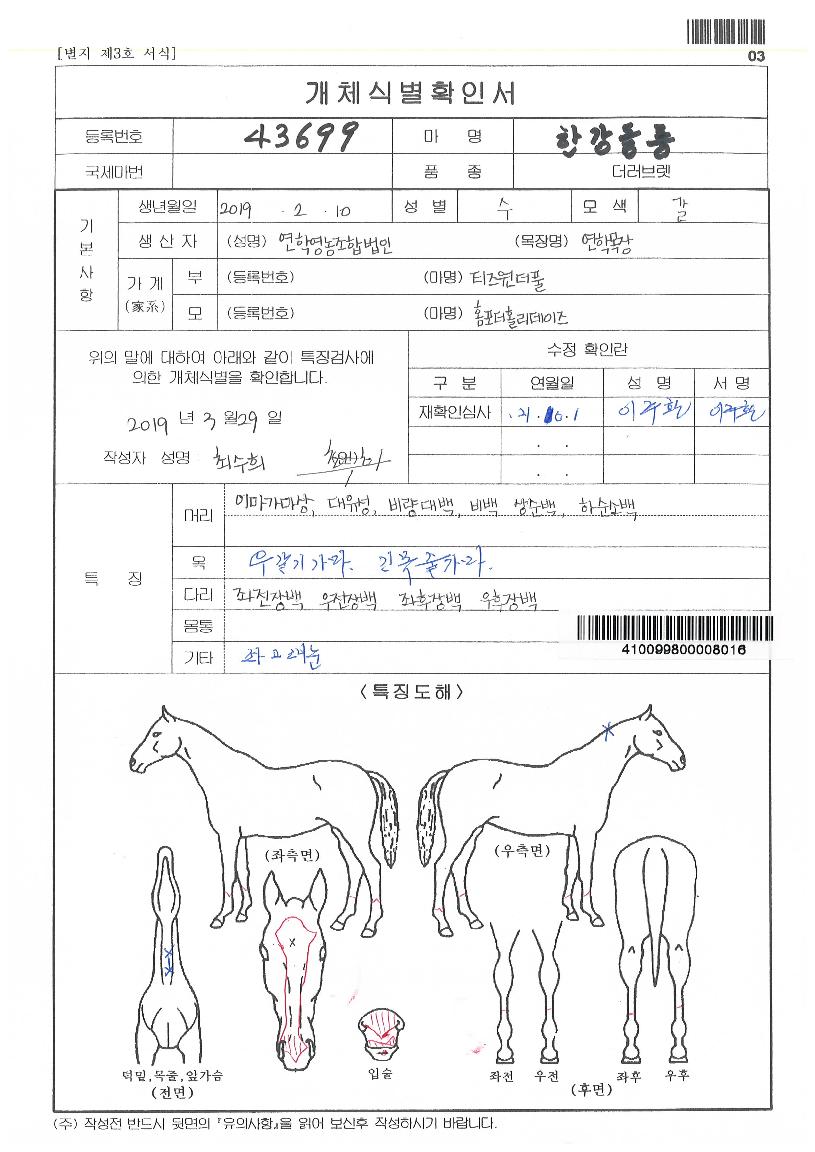 03
[별지 제3호 서식]
개체식별확인서
등록번호 43699 마 명 한강돌풍
국제마번 품 종 더러브렛
기본사항
생년월일 2019 . 2 . 10 성 별 수 모 색 갈
생 산 자 (성명) 연학영농조합법인 (목장명) 연학목장
가 계 (家系)
부 (등록번호) (마명) 티즈원더풀
모 (등록번호) (마명) 홈포더홀리데이즈
위의 말에 대하여 아래와 같이 특징검사에
의한 개체식별을 확인합니다.
2019 년 3 월 29 일
작성자 성명 최수희
수정 확인란
구 분 연월일 성 명 서 명
재확인심사 . 21 . 10 . 1
. .
. .
특 징
머리 이마가마상, 대유성, 비량대백, 비백 상순백, 하순소백
목 우갈기가마. 긴목줄가마.
다리 좌전장백 우전장백 좌후장백 우후장백
몸통
기타 좌고리눈
410099800008016
<특징도해>
(좌측면)
(우측면)
턱밑,목줄,앞가슴
(전면)
입술
좌전 우전
좌후 우후
(후면)
(주) 작성전 반드시 뒷면의 『유의사항』을 읽어 보신후 작성하시기 바랍니다.